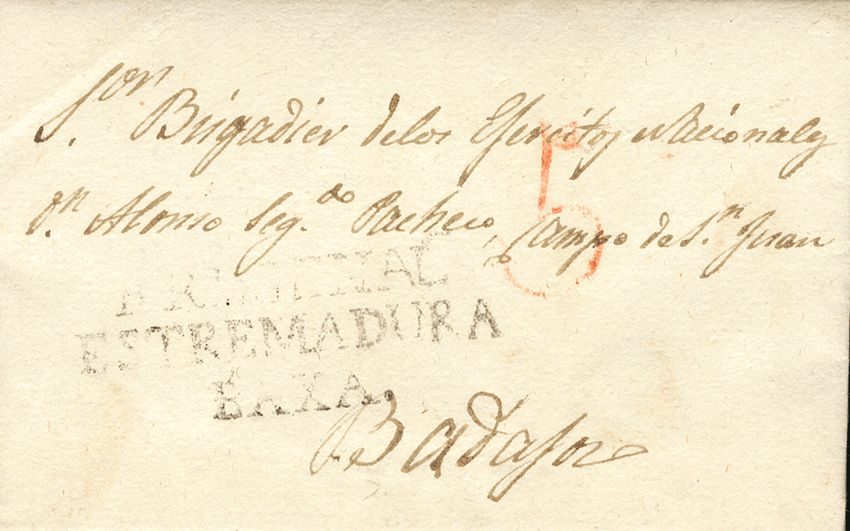 S.ᵒʳ Brigadier delos Esercitos Nacionales
D.ⁿ Alonso Seg.ᵈᵒ Pacheco, Campo de S.ⁿ Juan
5
ESTREMADURA
BAXA.
Badajoz